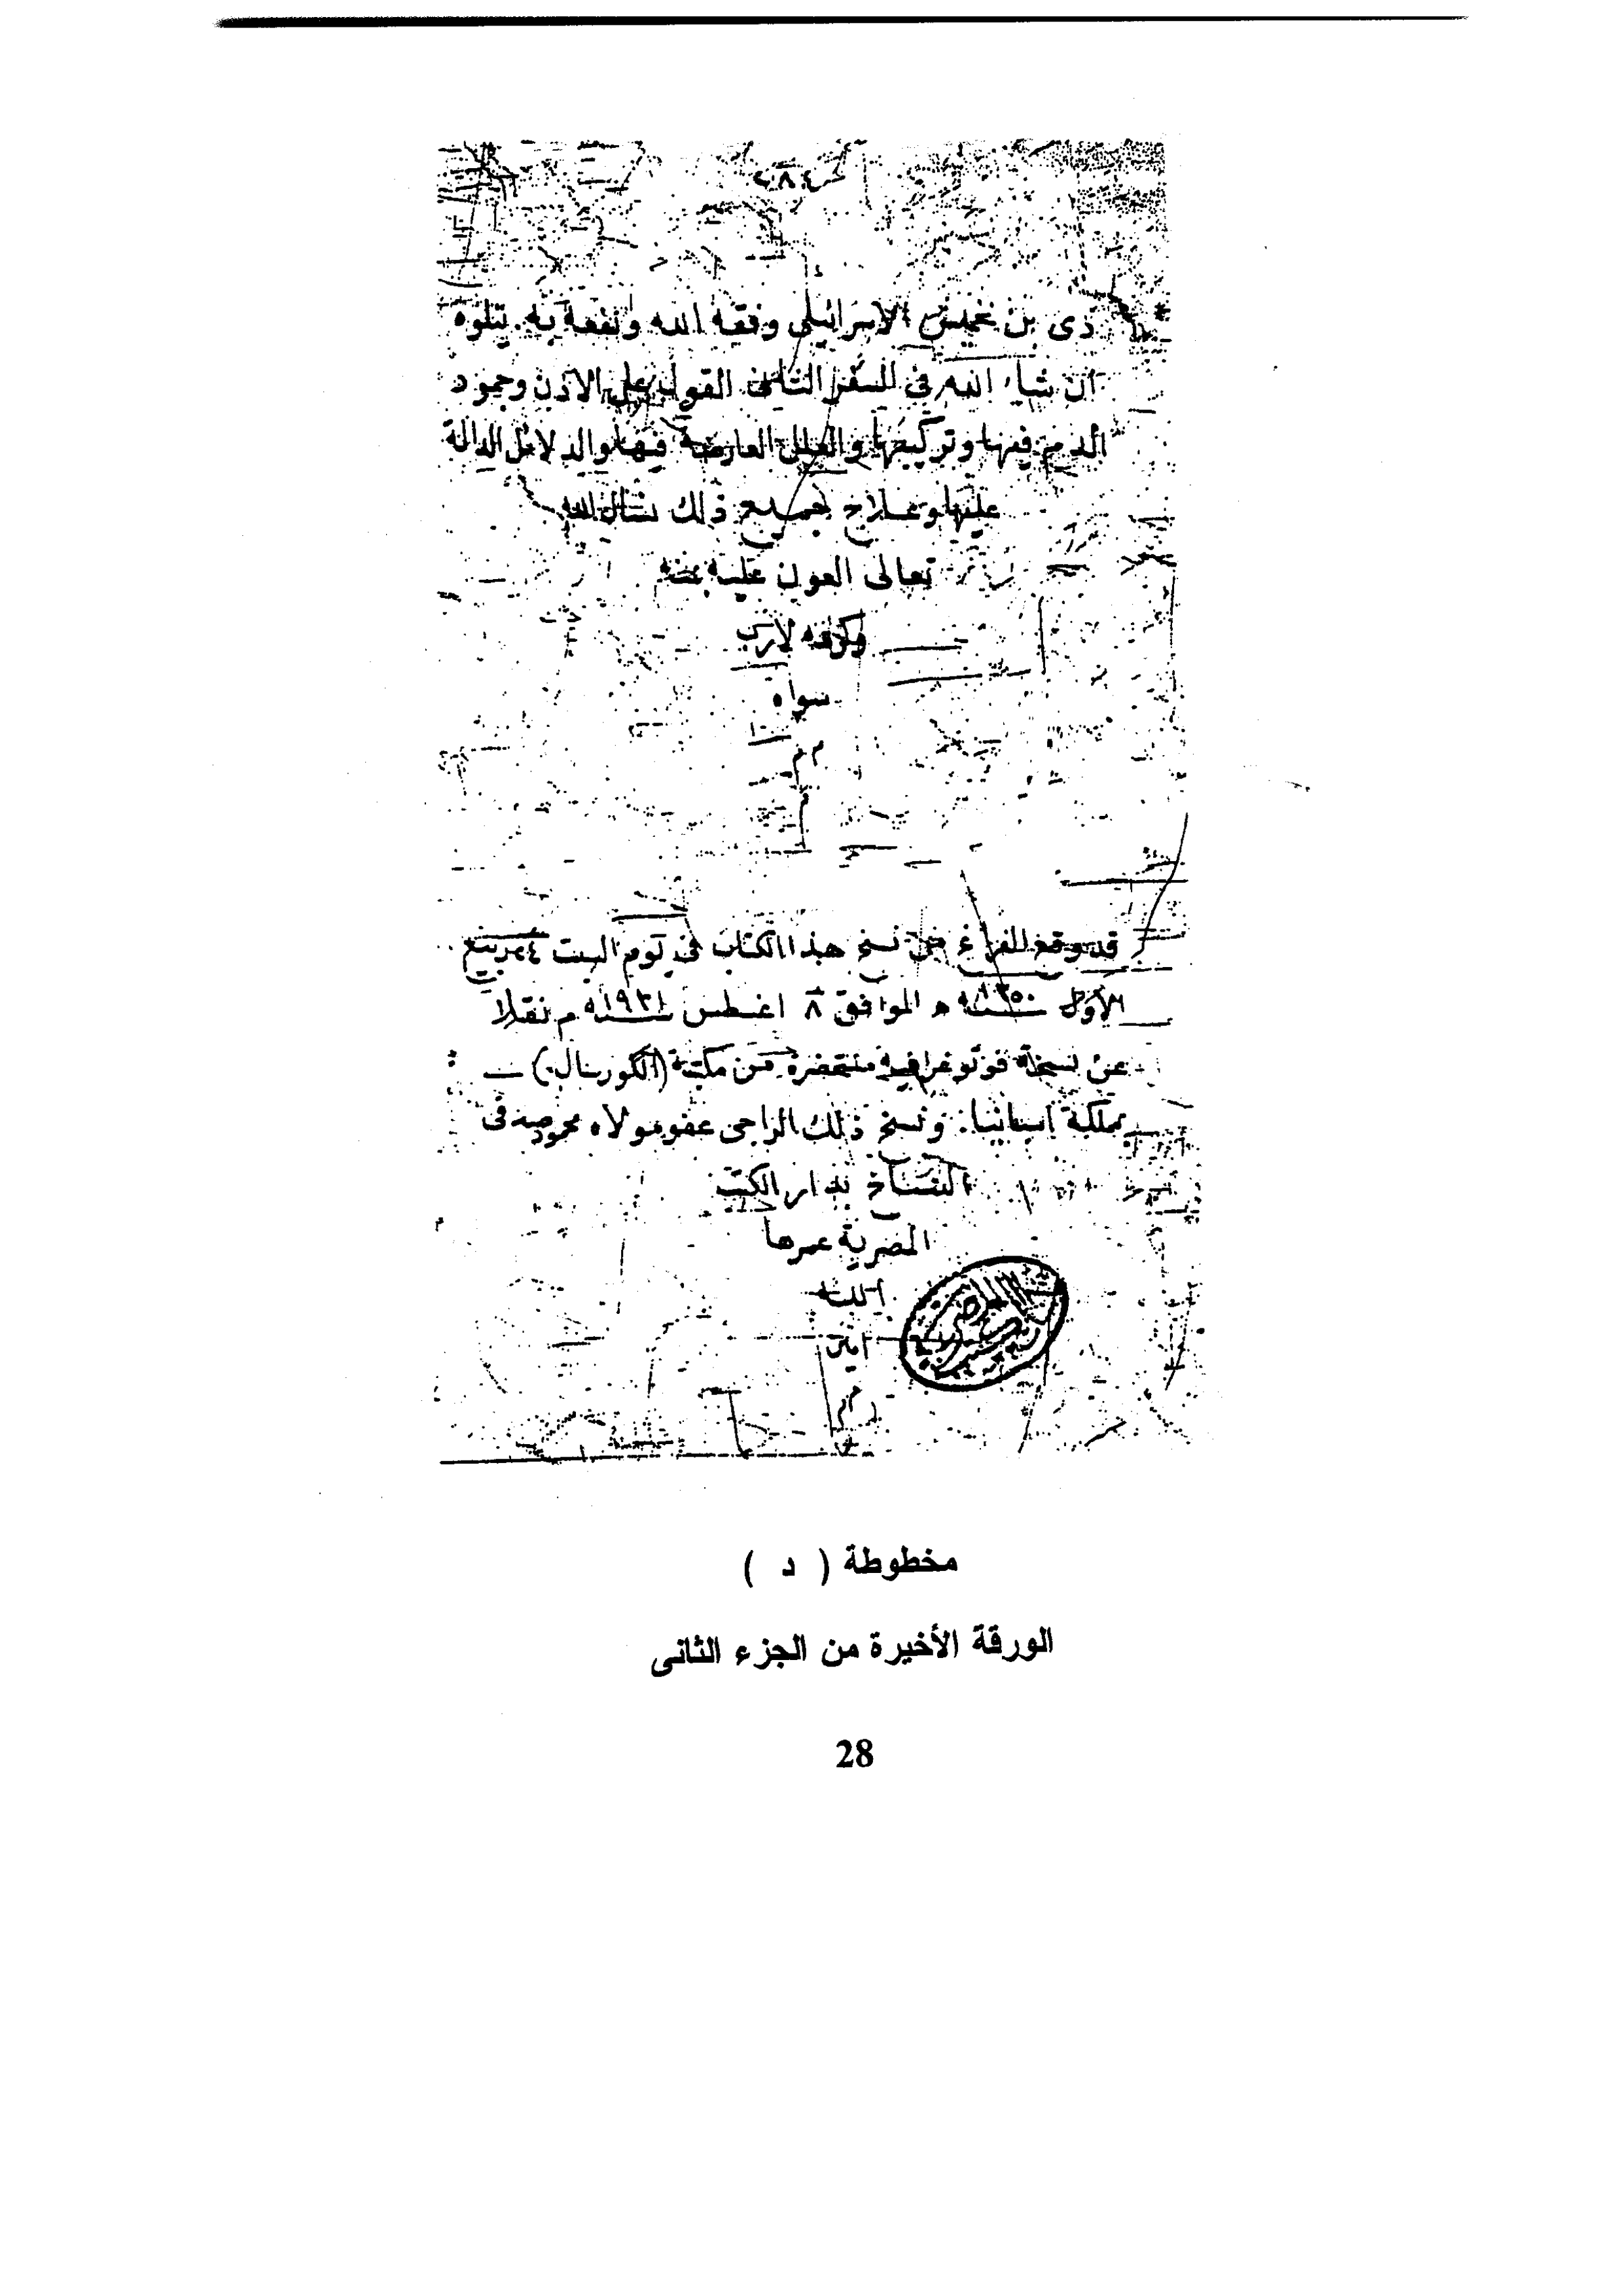 دى بن نخميش الاسرائيلى وفقه الله ونفعه به. يتلوه
ان شاء الله فى السفر الثانى القول على الاذن وجمود
الدم فيها وتركيبها والعلل العارضة فيها والدلائل الدالة
عليها وعلاج جميع ذلك نسأل الله
تعالى العون عليه بمنه
وكرمه لا رب
سواه
م م
م
قد وقع الفراغ من نسخ هذا الكتاب فى يوم السبت ربيع
الأول سنة ١٣٥٠ ه الموافق ٨ اغسطس سنة ١٩٣١ م نقلا
عن نسخة فوتوغرافية مستحضرة من مكتبة (الكوريال)
بمملكة اسبانيا. ونسخ ذلك الراجى عفو مولاه محمود صدقى
النساخ بدار الكتب
المصرية عمرها
الله
امين
م م
مخطوطة ( د )
الورقة الأخيرة من الجزء الثانى
28